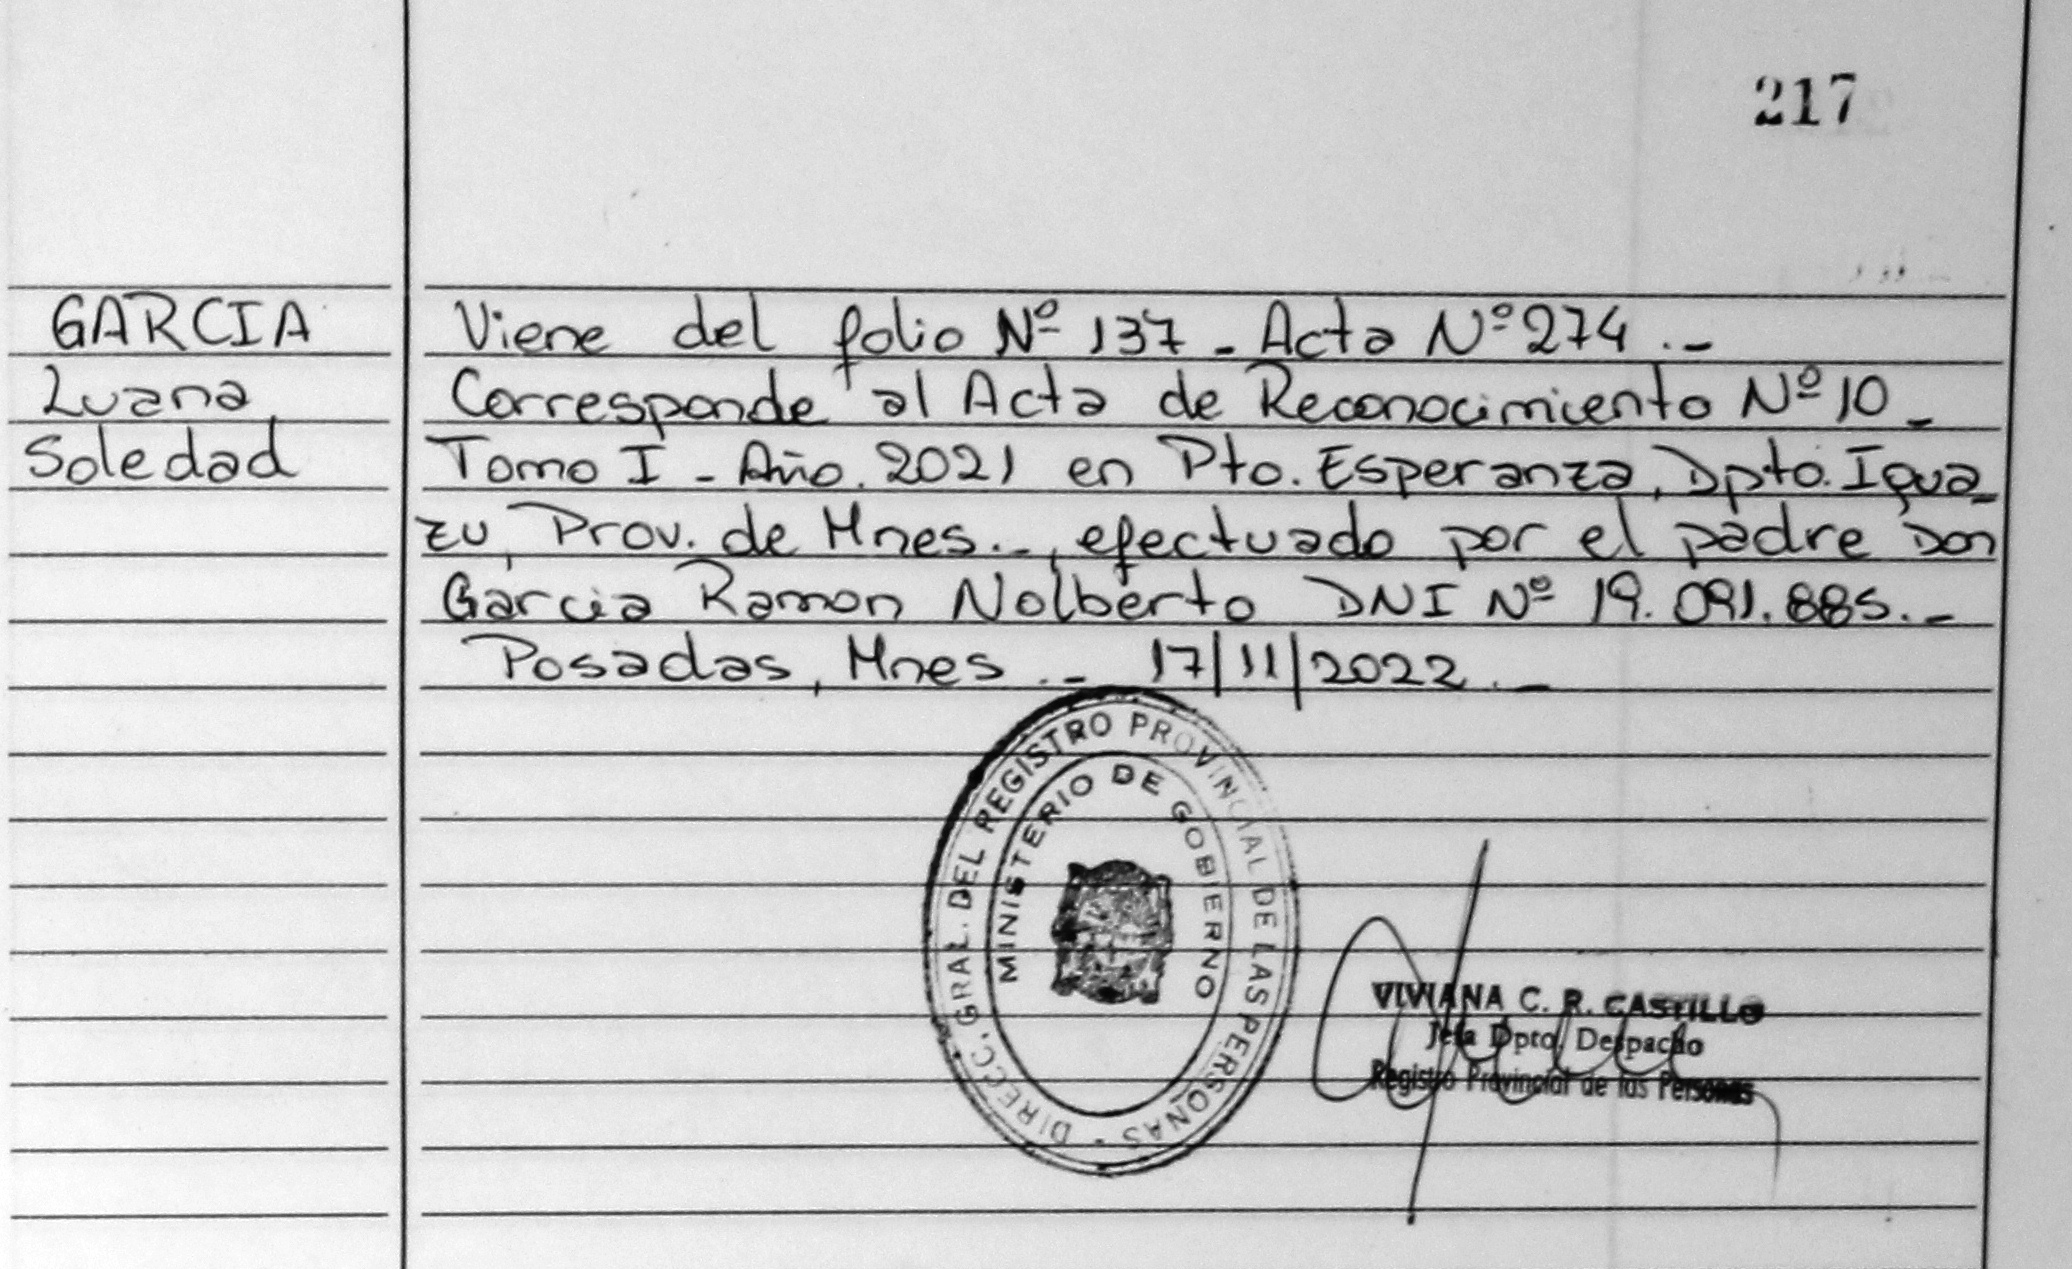 217
GARCIA
Luana
Soledad
Viene del folio Nº 137 - Acta Nº 274 . -
Corresponde al Acta de Reconocimiento Nº 10 -
Tomo I - Año. 2021 en Pto. Esperanza, Dpto. Igua-
zu, Prov. de Mnes. -, efectuado por el padre Don
Garcia Ramon Nolberto DNI Nº 19.091.885. -
Posadas, Mnes . - 17/11/2022 . -
DIRECC. GRAL. DEL REGISTRO PROVINCIAL DE LAS PERSONAS -
MINISTERIO DE GOBIERNO
VIVIANA C. R. CASTILLO
Jefa Dpto. Despacho
Registro Provincial de las Personas